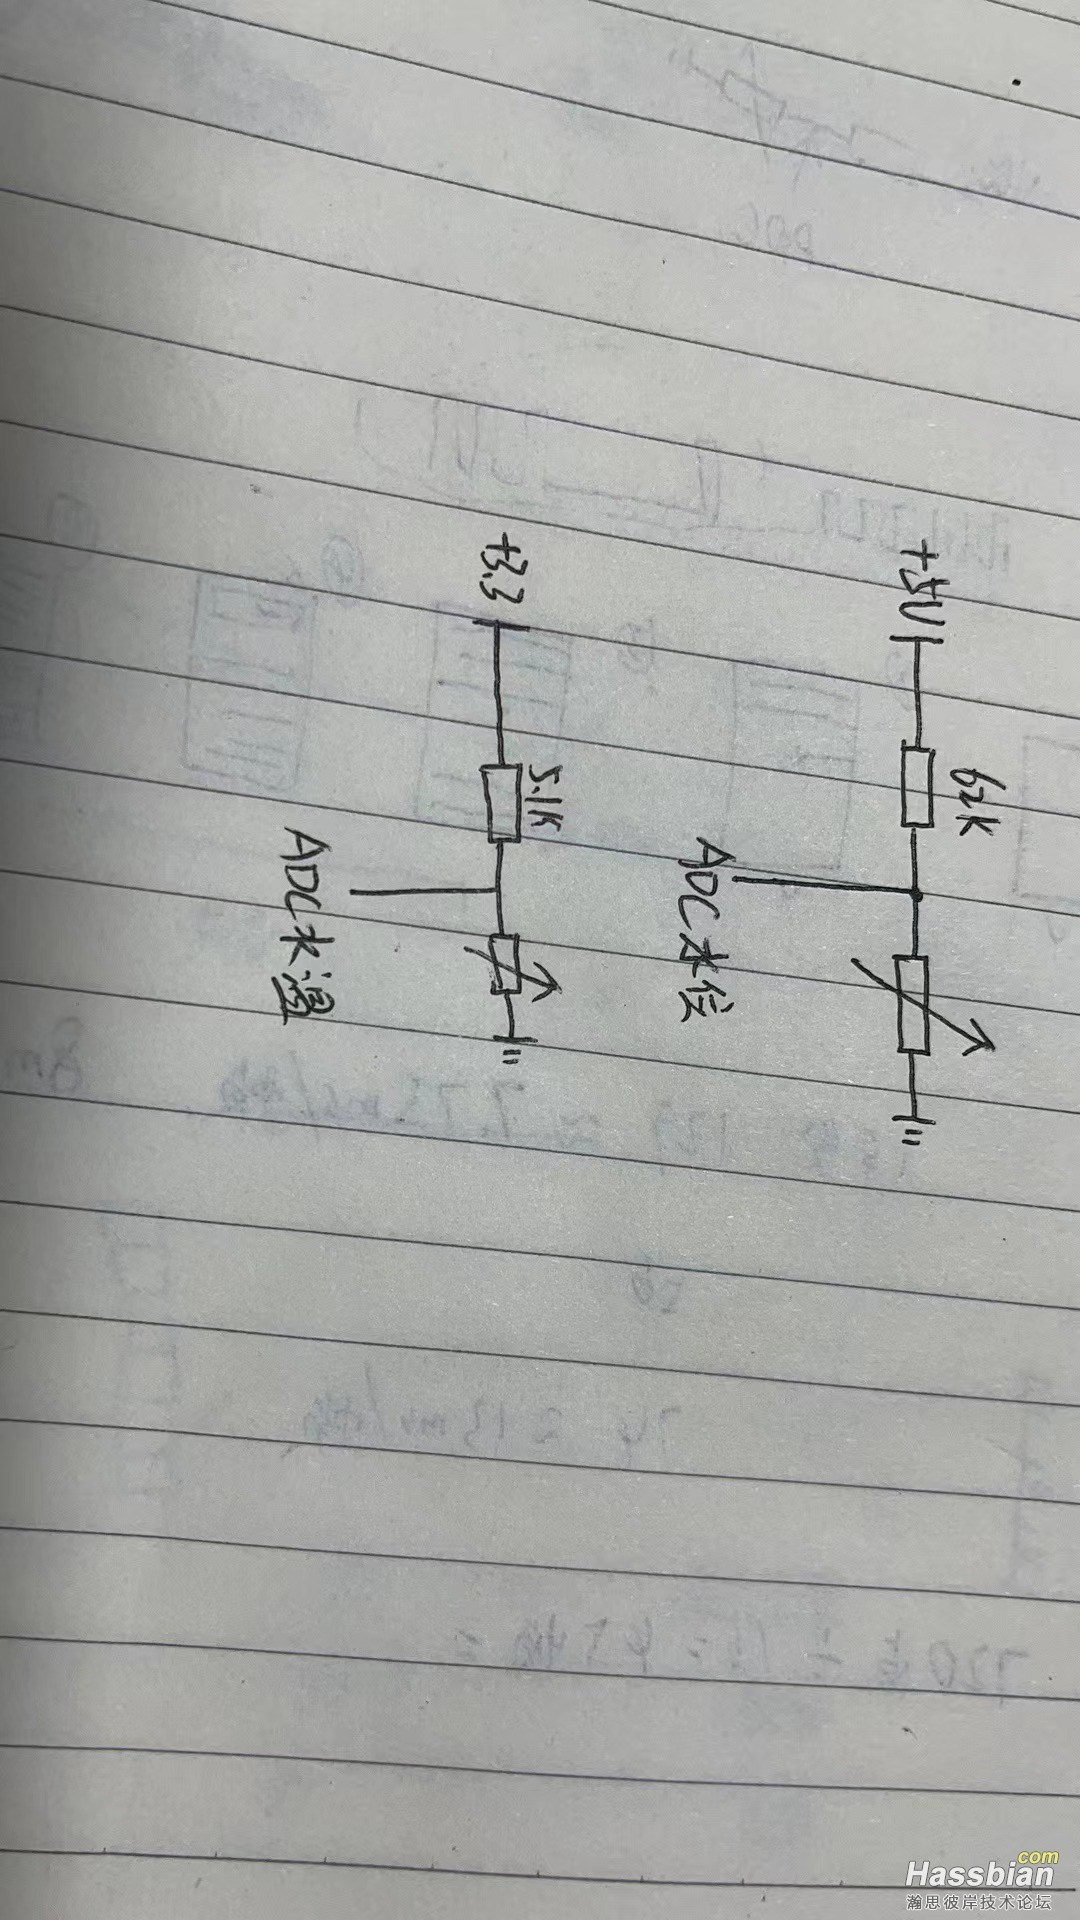 +5V
62K
ADC水位
+3.3
5.1K
ADC水温
Hassbian
.com
瀚思彼岸技术论坛